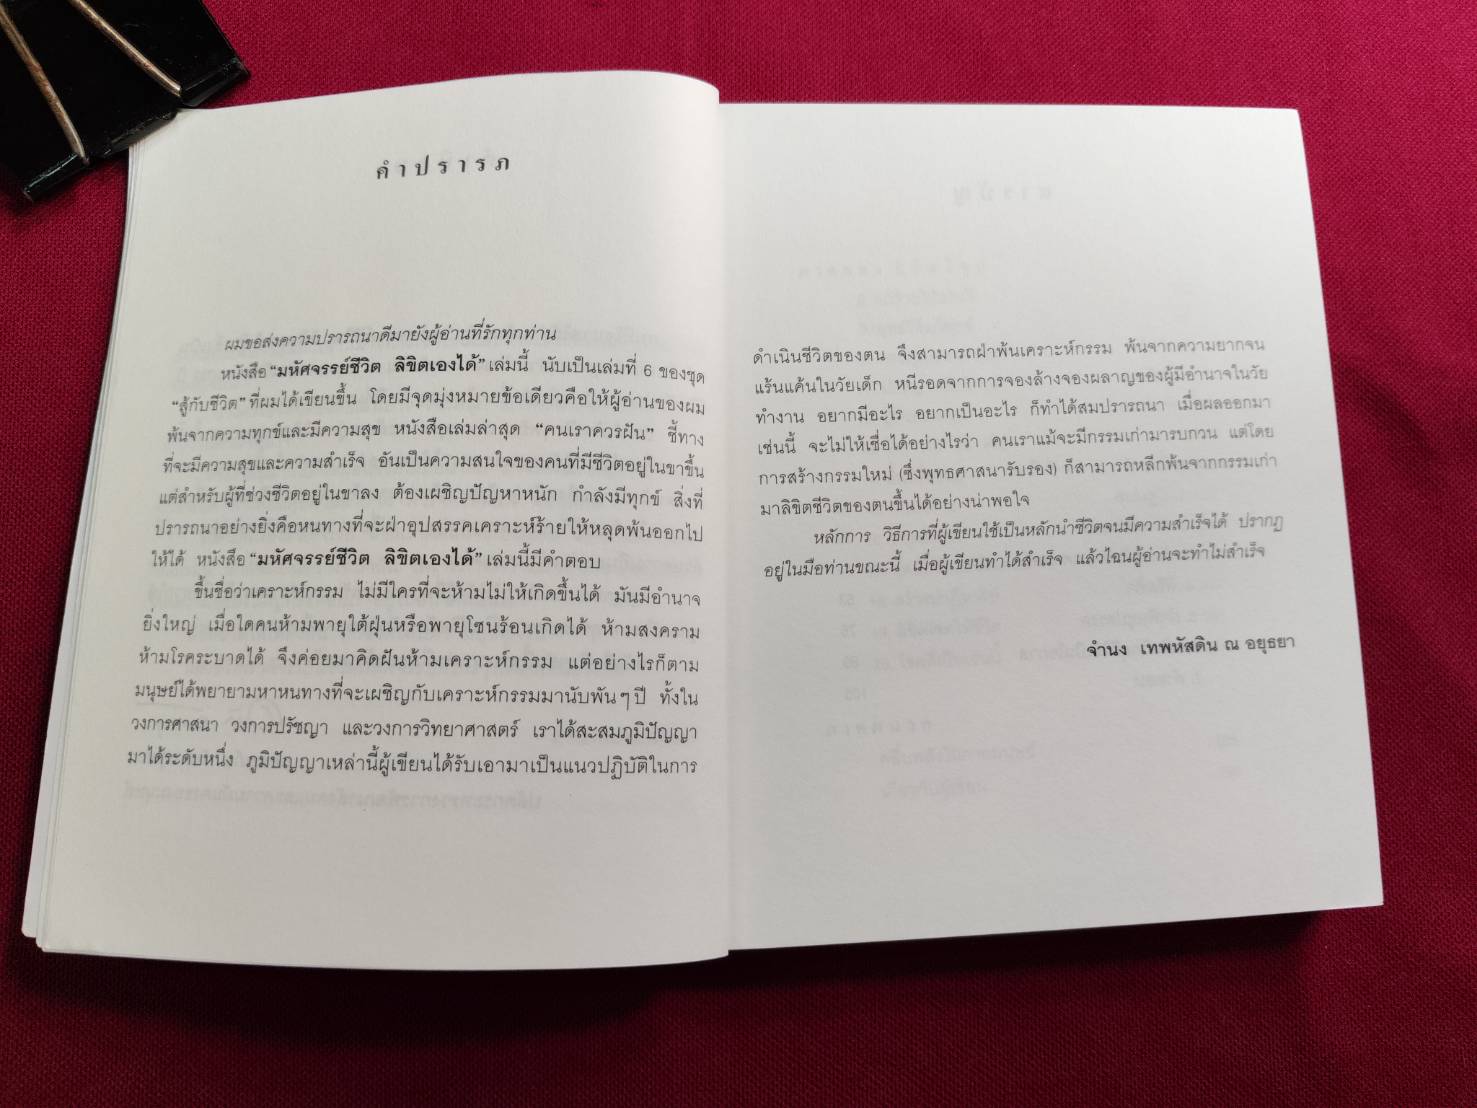 คำปรารภ
ผมขอส่งความปรารถนาดีมายังผู้อ่านที่รักทุกท่าน
หนังสือ “มหัศจรรย์ชีวิต ลิขิตเองได้” เล่มนี้ นับเป็นเล่มที่ 6 ของชุด
“สู้กับชีวิต” ที่ผมได้เขียนขึ้น โดยมีจุดมุ่งหมายข้อเดียวคือให้ผู้อ่านของผม
พ้นจากความทุกข์และมีความสุข หนังสือเล่มล่าสุด “คนเราควรฝัน” ชี้ทาง
ที่จะมีความสุขและความสำเร็จ อันเป็นความสนใจของคนที่มีชีวิตอยู่ในขาขึ้น
แต่สำหรับผู้ที่ช่วงชีวิตอยู่ในขาลง ต้องเผชิญปัญหาหนัก กำลังมีทุกข์ สิ่งที่
ปรารถนาอย่างยิ่งคือหนทางที่จะฝ่าอุปสรรคเคราะห์ร้ายให้หลุดพ้นออกไป
ให้ได้ หนังสือ “มหัศจรรย์ชีวิต ลิขิตเองได้” เล่มนี้มีคำตอบ
ขึ้นชื่อว่าเคราะห์กรรม ไม่มีใครที่จะห้ามไม่ให้เกิดขึ้นได้ มันมีอำนาจ
ยิ่งใหญ่ เมื่อใดคนห้ามพายุใต้ฝุ่นหรือพายุโซนร้อนเกิดได้ ห้ามสงคราม
ห้ามโรคระบาดได้ จึงค่อยมาคิดฝันห้ามเคราะห์กรรม แต่อย่างไรก็ตาม
มนุษย์ได้พยายามหาหนทางที่จะเผชิญกับเคราะห์กรรมมานับพันๆ ปี ทั้งใน
วงการศาสนา วงการปรัชญา และวงการวิทยาศาสตร์ เราได้สะสมภูมิปัญญา
มาได้ระดับหนึ่ง ภูมิปัญญาเหล่านี้ผู้เขียนได้รับเอามาเป็นแนวปฏิบัติในการ
ดำเนินชีวิตของตน จึงสามารถฝ่าพ้นเคราะห์กรรม พ้นจากความยากจน
แร้นแค้นในวัยเด็ก หนีรอดจากการจองล้างจองผลาญของผู้มีอำนาจในวัย
ทำงาน อยากมีอะไร อยากเป็นอะไร ก็ทำได้สมปรารถนา เมื่อผลออกมา
เช่นนี้ จะไม่ให้เชื่อได้อย่างไรว่า คนเราแม้จะมีกรรมเก่ามารบกวน แต่โดย
การสร้างกรรมใหม่ (ซึ่งพุทธศาสนารับรอง) ก็สามารถหลีกพ้นจากกรรมเก่า
มาลิขิตชีวิตของตนขึ้นได้อย่างน่าพอใจ
หลักการ วิธีการที่ผู้เขียนใช้เป็นหลักนำชีวิตจนมีความสำเร็จได้ ปรากฏ
อยู่ในมือท่านขณะนี้ เมื่อผู้เขียนทำได้สำเร็จ แล้วไฉนผู้อ่านจะทำไม่สำเร็จ
จำนง เทพหัสดิน ณ อยุธยา